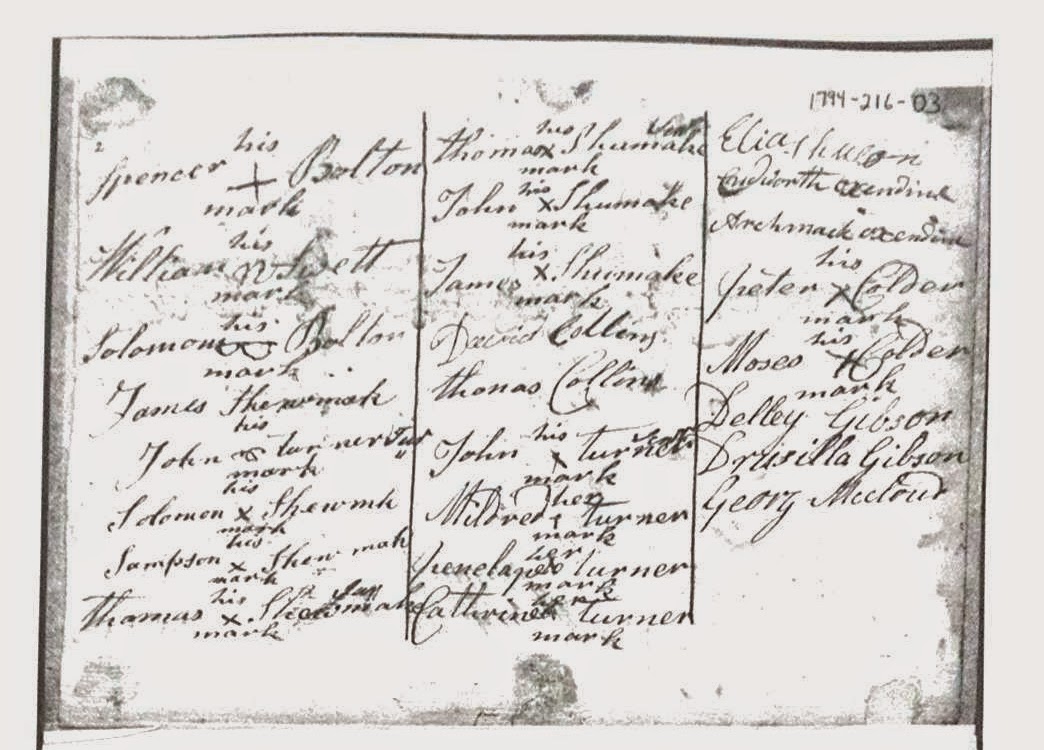 1794-216-03
his
Spencer + Bolton
mark
his
William Swett
mark
his
Solomon Bolton
mark
James Shewmak
his
John x turner Jur
mark
his
Solomon x Shewmk
mark
his
Sampson x Shewmak
mark
his Jun
thomas x Shewmake
mark
his
thomas x Shumake
mark
his
John x Shumake
mark
his
James x Shumake
mark
David Collins
thomas Collins
his
John x turner
mark
her
Mildred turner
mark
her
turner
mark
her
Cathrine turner
mark
Cudworth oxendine
Archmack oxendine
his
peter x Colder
mark
his
Moses x Colder
mark
Delley Gibson
Drusilla Gibson
Georg Mccloud